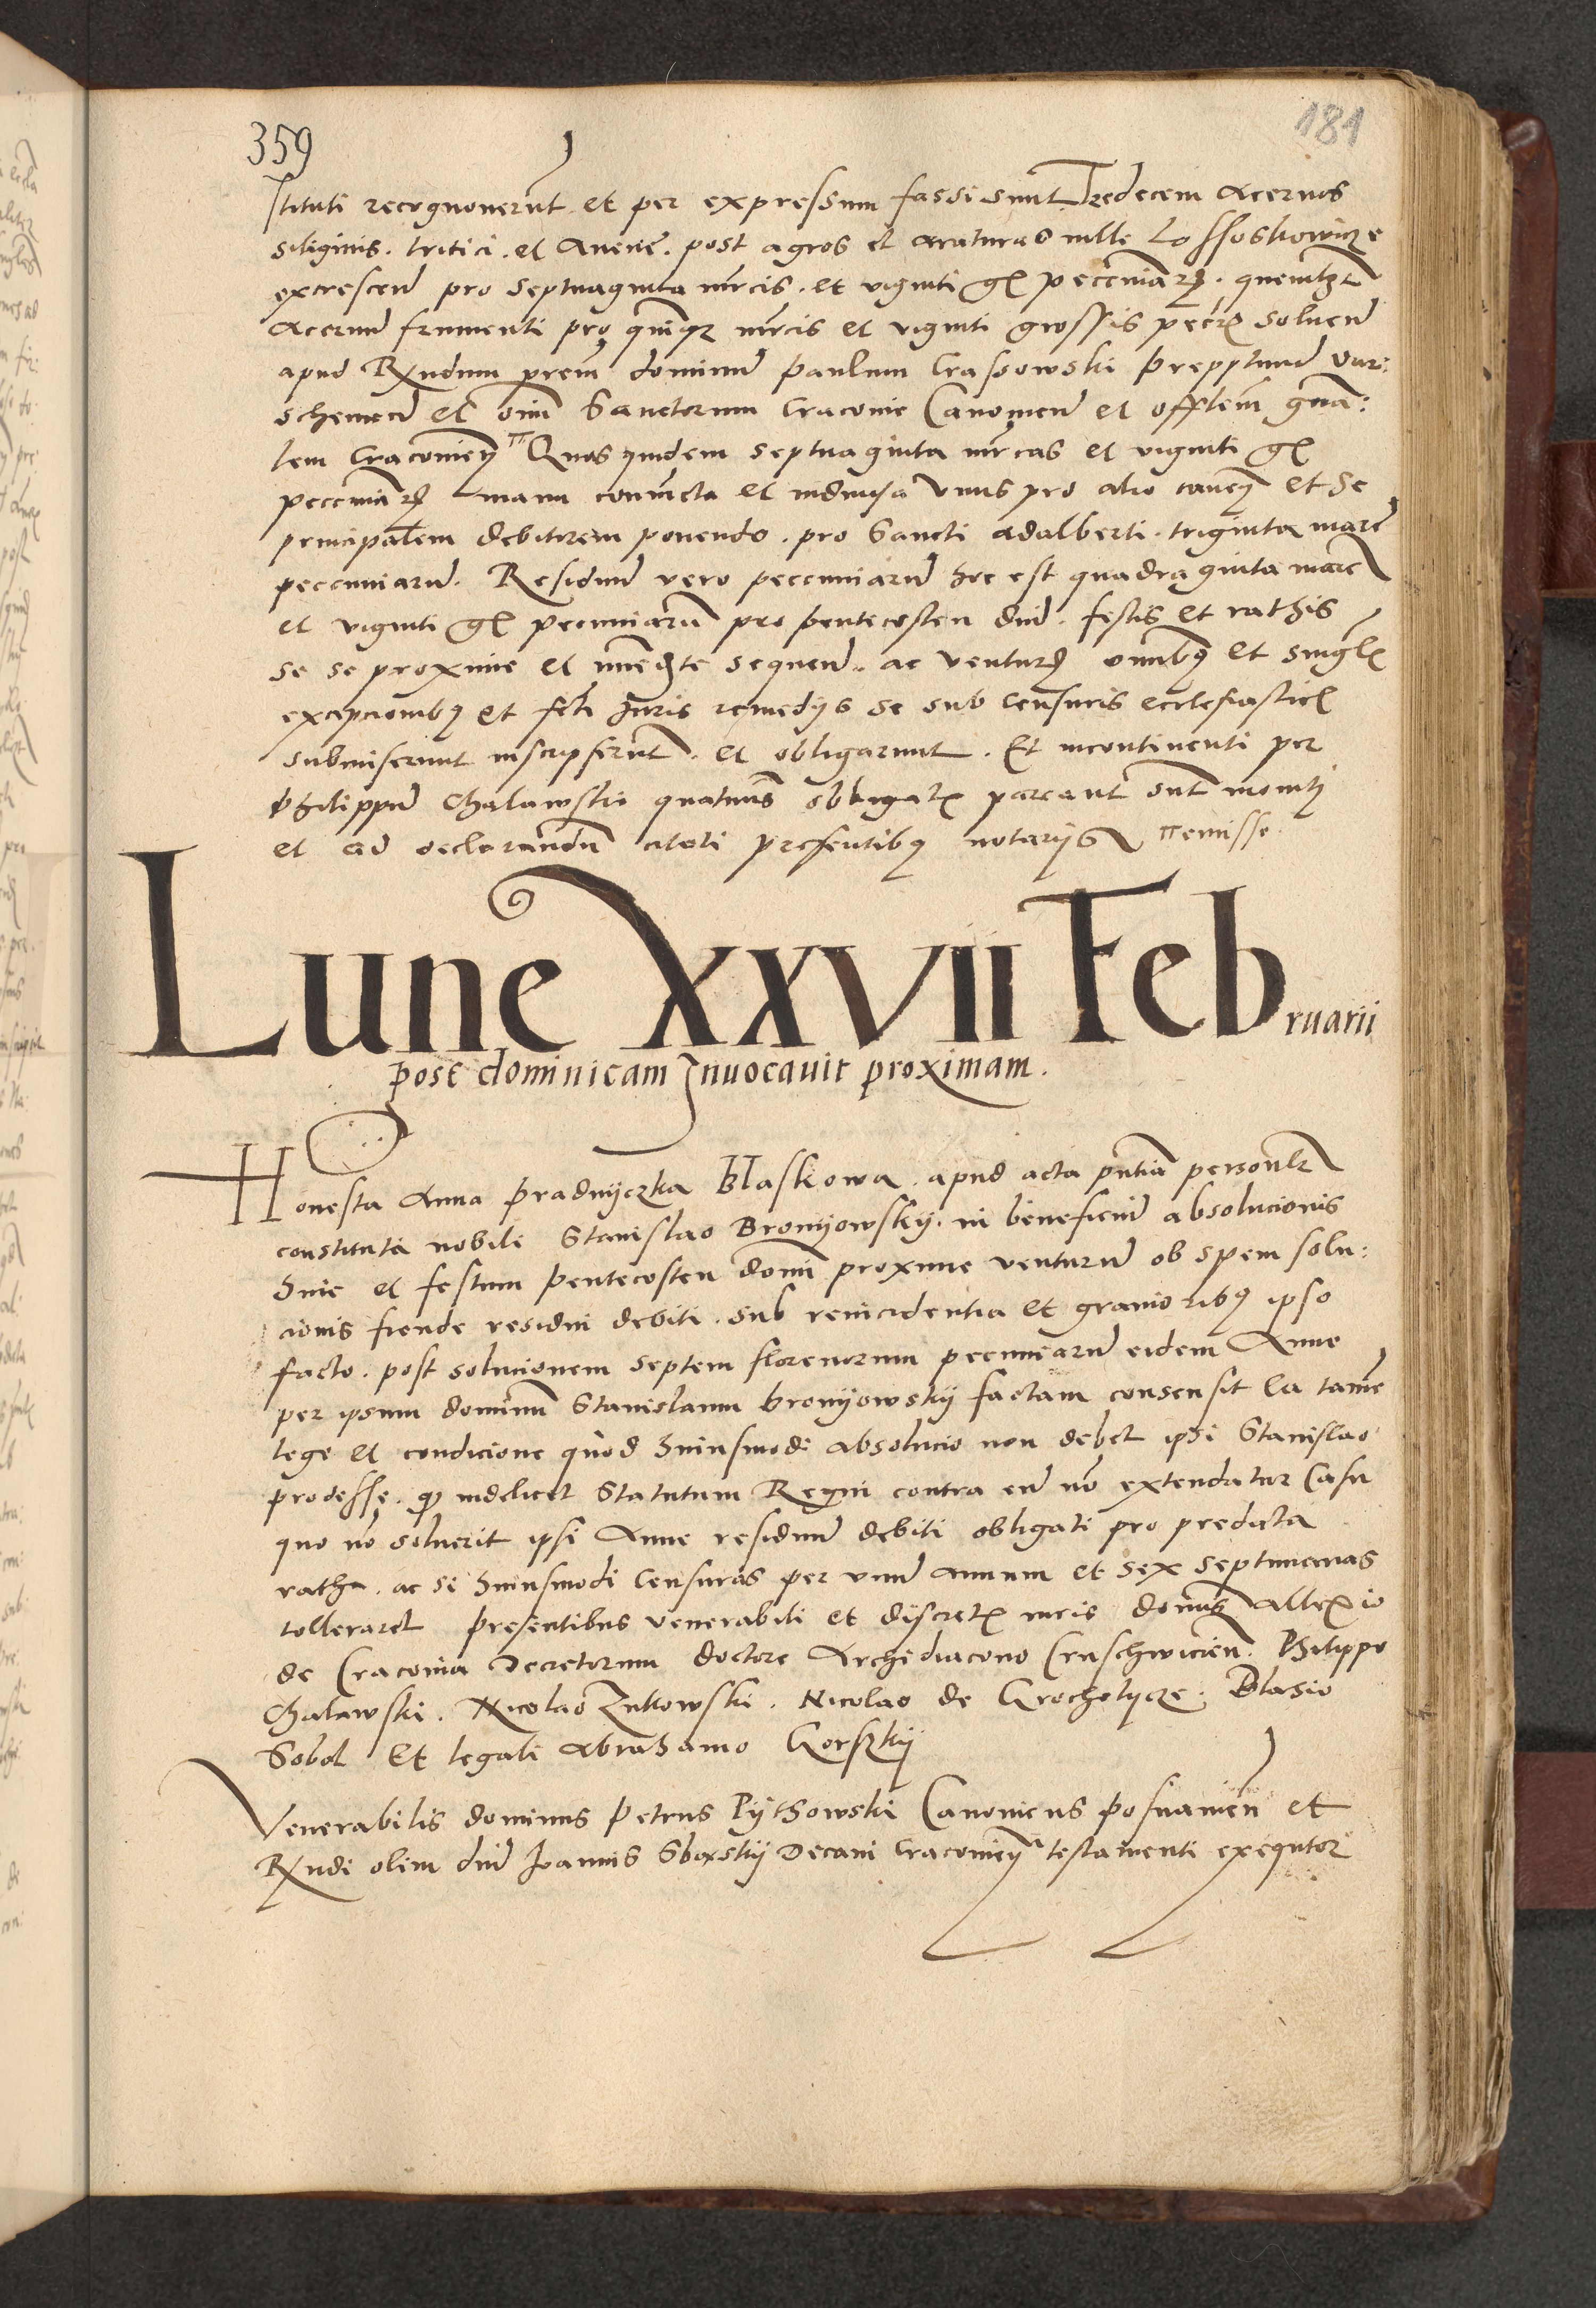 359
181
stituti recognoverunt et per expressum fassi sunt Tredecem acervos
siliginis . tritici . et Avene . post agros et araturas ville Lossoskowicze
excrescen pro septuaginta mrcis . et viginti gr peccuniarum . quemlibet
acervum frumenti pro quinque mrcis et viginti grossis solven
apud Rndum prem dominum Paulum Crassowski
et oim Sanctorum Cracovie Canonicum et offlem gnā:
lem Cracovien Quos quidem septuaginta mrcas et viginti gr
peccuniarum manu coniuncta et indivisa unus pro alio caven et se
principalem debitorem ponendo . pro Sancti Adalberti . triginta marc
peccuniarum . Residuum vero peccuniarum hoc est quadraginta marc
et viginti gr pecuniarum pro pentecosten dnid . festis et rathis
se se proxime et immediate sequen . ac venturis omnibus et singulis
excepcionibus et Iuris remedys se sub censuris ecclesiasticis
submiserunt inscripserunt . et obligarunt . Et incontinenti per
Philippum Chalawski quatenus obligatis pareant sunt moniti
et ad declarandum citati presentibus notarys emisse
Lune XXVII Februarii
post dominicam Invocavit proximam .
Honesta Anna Pradnyczka Blaskowa . apud acta pntia personlr
constituta nobili Stanislao Bronyowsky . in beneficium absolucionis
hinc et festum pentecosten domi proxime venturum ob spem solu:
cionis fiende residui debiti . sub reincidentia et gravioribus ipso
facto . post solucionem septem florenorum pecuniarum eidem Anne
per ipsum dominum Stanislaum bronyowsky factam consensit Ea tamen
lege et condicione quod huiusmodi absolucio non debet ipsi Stanislao
prodesse . quod videlicet Statutum Regni contra eum no extendatur Casu
quo no solverit ipsi Anne residuum debiti obligati pro predicta
ratha . ac si huiusmodi censuras per unum annum et sex septimanas
tolleraret presentibus venerabili et discretis viris dominis Allexio
de Cracovia Decretorum doctore Archidiacono Cruschwicien . Philippo
Chalawski . Nicolao Zukowski . Nicolao de Grocholycze . Blasio
Sobol Et legali Abrahamo Gorszky
Venerabilis dominus Petrus Pythowski Canonicus Posnanien et
Rndi olim dni Joannis Sborsky Decani Cracovien testamenti exequtor